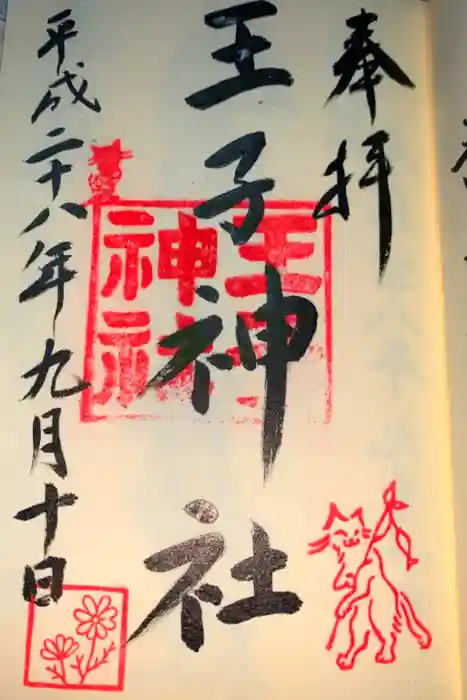 奉拝
王子神社
平成二十八年九月十日
王子
神社